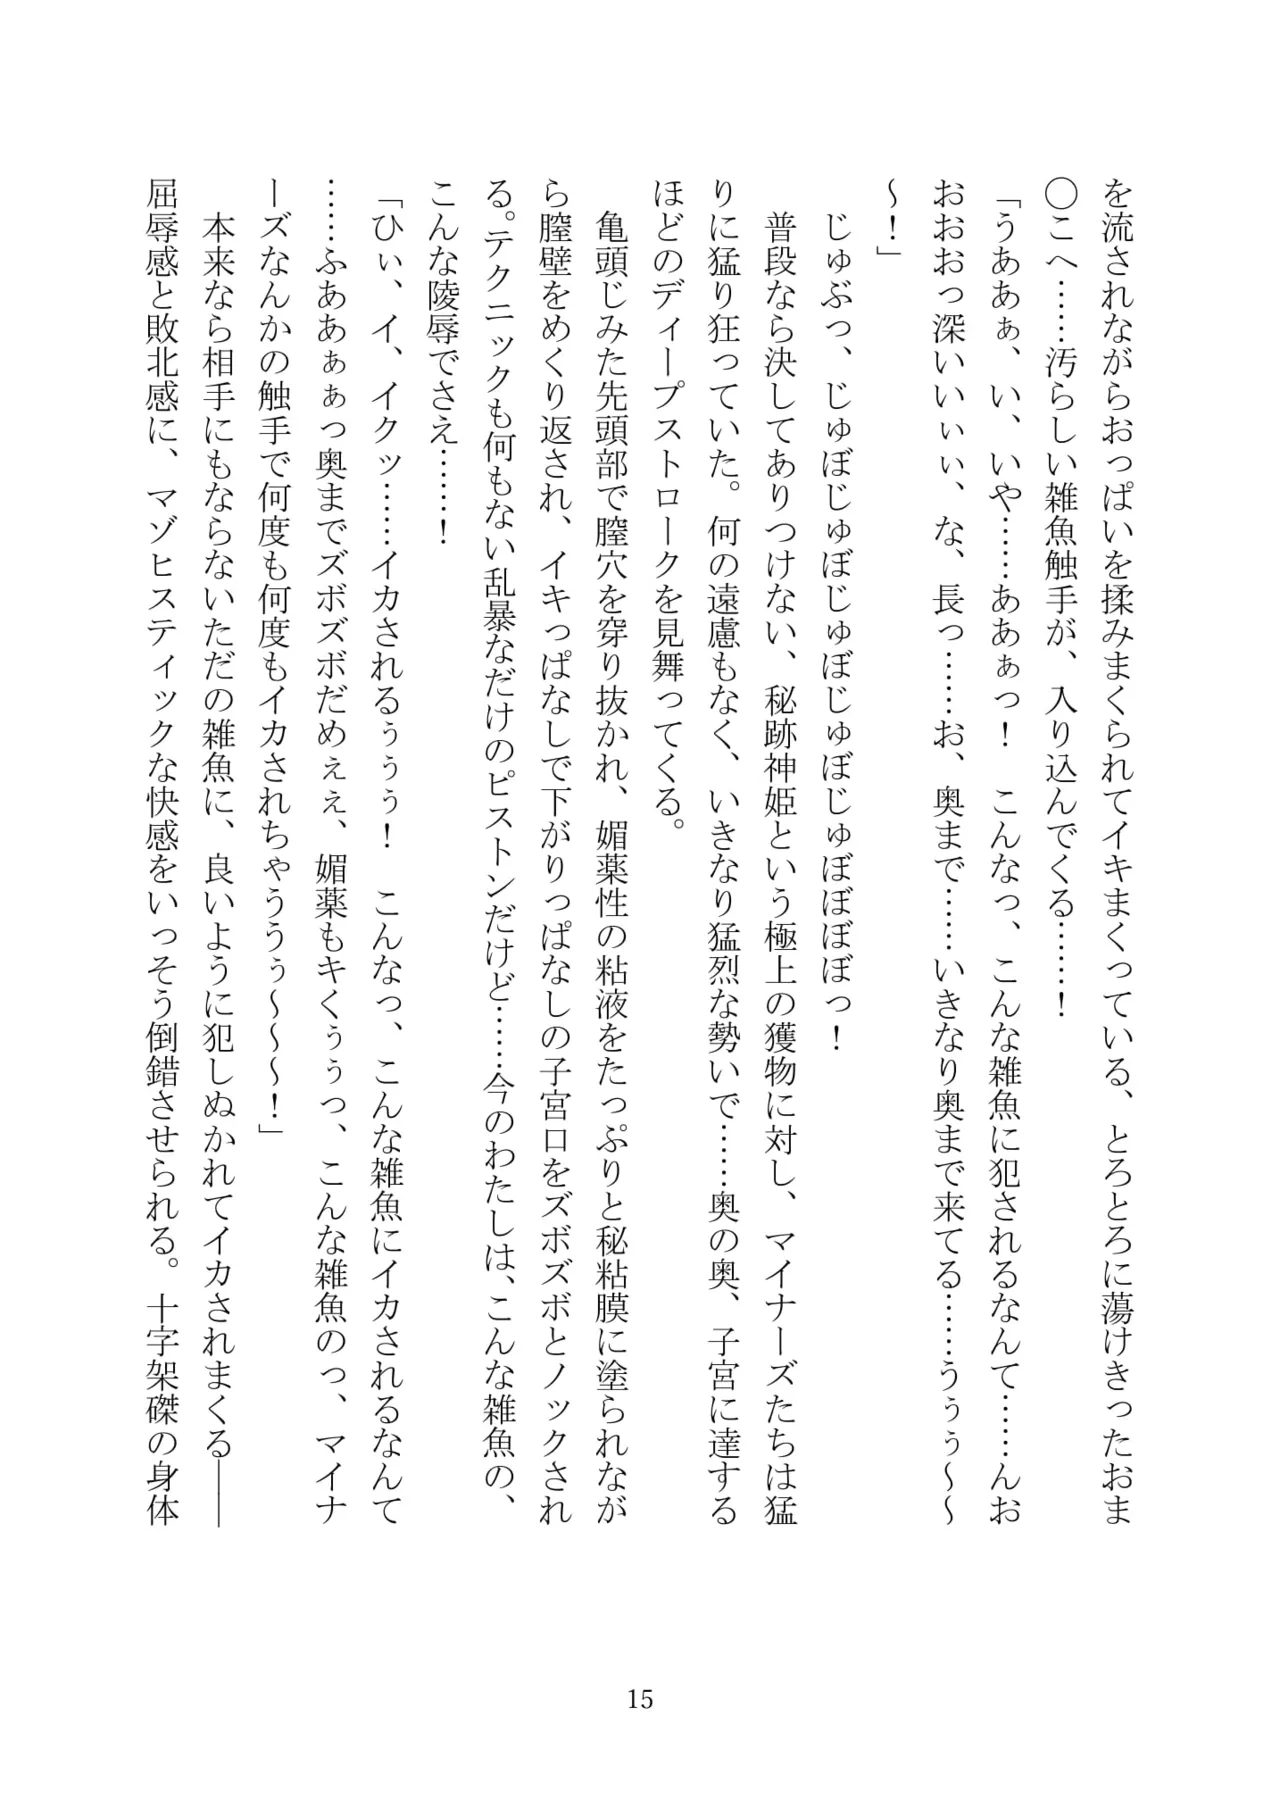 を流されながらおっぱいを揉みまくられてイキまくっている、とろとろに蕩けきったおま
〇こへ……汚らしい雑魚触手が、入り込んでくる……！
「うああぁ、い、いや……ああぁっ！　こんなっ、こんな雑魚に犯されるなんて……んお
おおおっ深いいぃぃ、な、長っ……お、奥まで……いきなり奥まで来てる……うぅぅ～～
～！」
　じゅぶっ、じゅぼじゅぼじゅぼじゅぼじゅぼぼぼぼっ！
　普段なら決してありつけない、秘跡神姫という極上の獲物に対し、マイナーズたちは猛
りに猛り狂っていた。何の遠慮もなく、いきなり猛烈な勢いで……奥の奥、子宮に達する
ほどのディープストロークを見舞ってくる。
　亀頭じみた先頭部で膣穴を穿り抜かれ、媚薬性の粘液をたっぷりと秘粘膜に塗られなが
ら膣壁をめくり返され、イキっぱなしで下がりっぱなしの子宮口をズボズボとノックされ
る。テクニックも何もない乱暴なだけのピストンだけど……今のわたしは、こんな雑魚の、
こんな陵辱でさえ……！
「ひぃ、イ、イクッ……イカされるぅぅぅ！　こんなっ、こんな雑魚にイカされるなんて
……ふああぁぁっ奥までズボズボだめぇぇ、媚薬もキくぅぅっ、こんな雑魚のっ、マイナ
ーズなんかの触手で何度も何度もイカされちゃううぅ～～～！」
　本来なら相手にもならないただの雑魚に、良いように犯しぬかれてイカされまくる――
屈辱感と敗北感に、マゾヒスティックな快感をいっそう倒錯させられる。十字架磔の身体
15